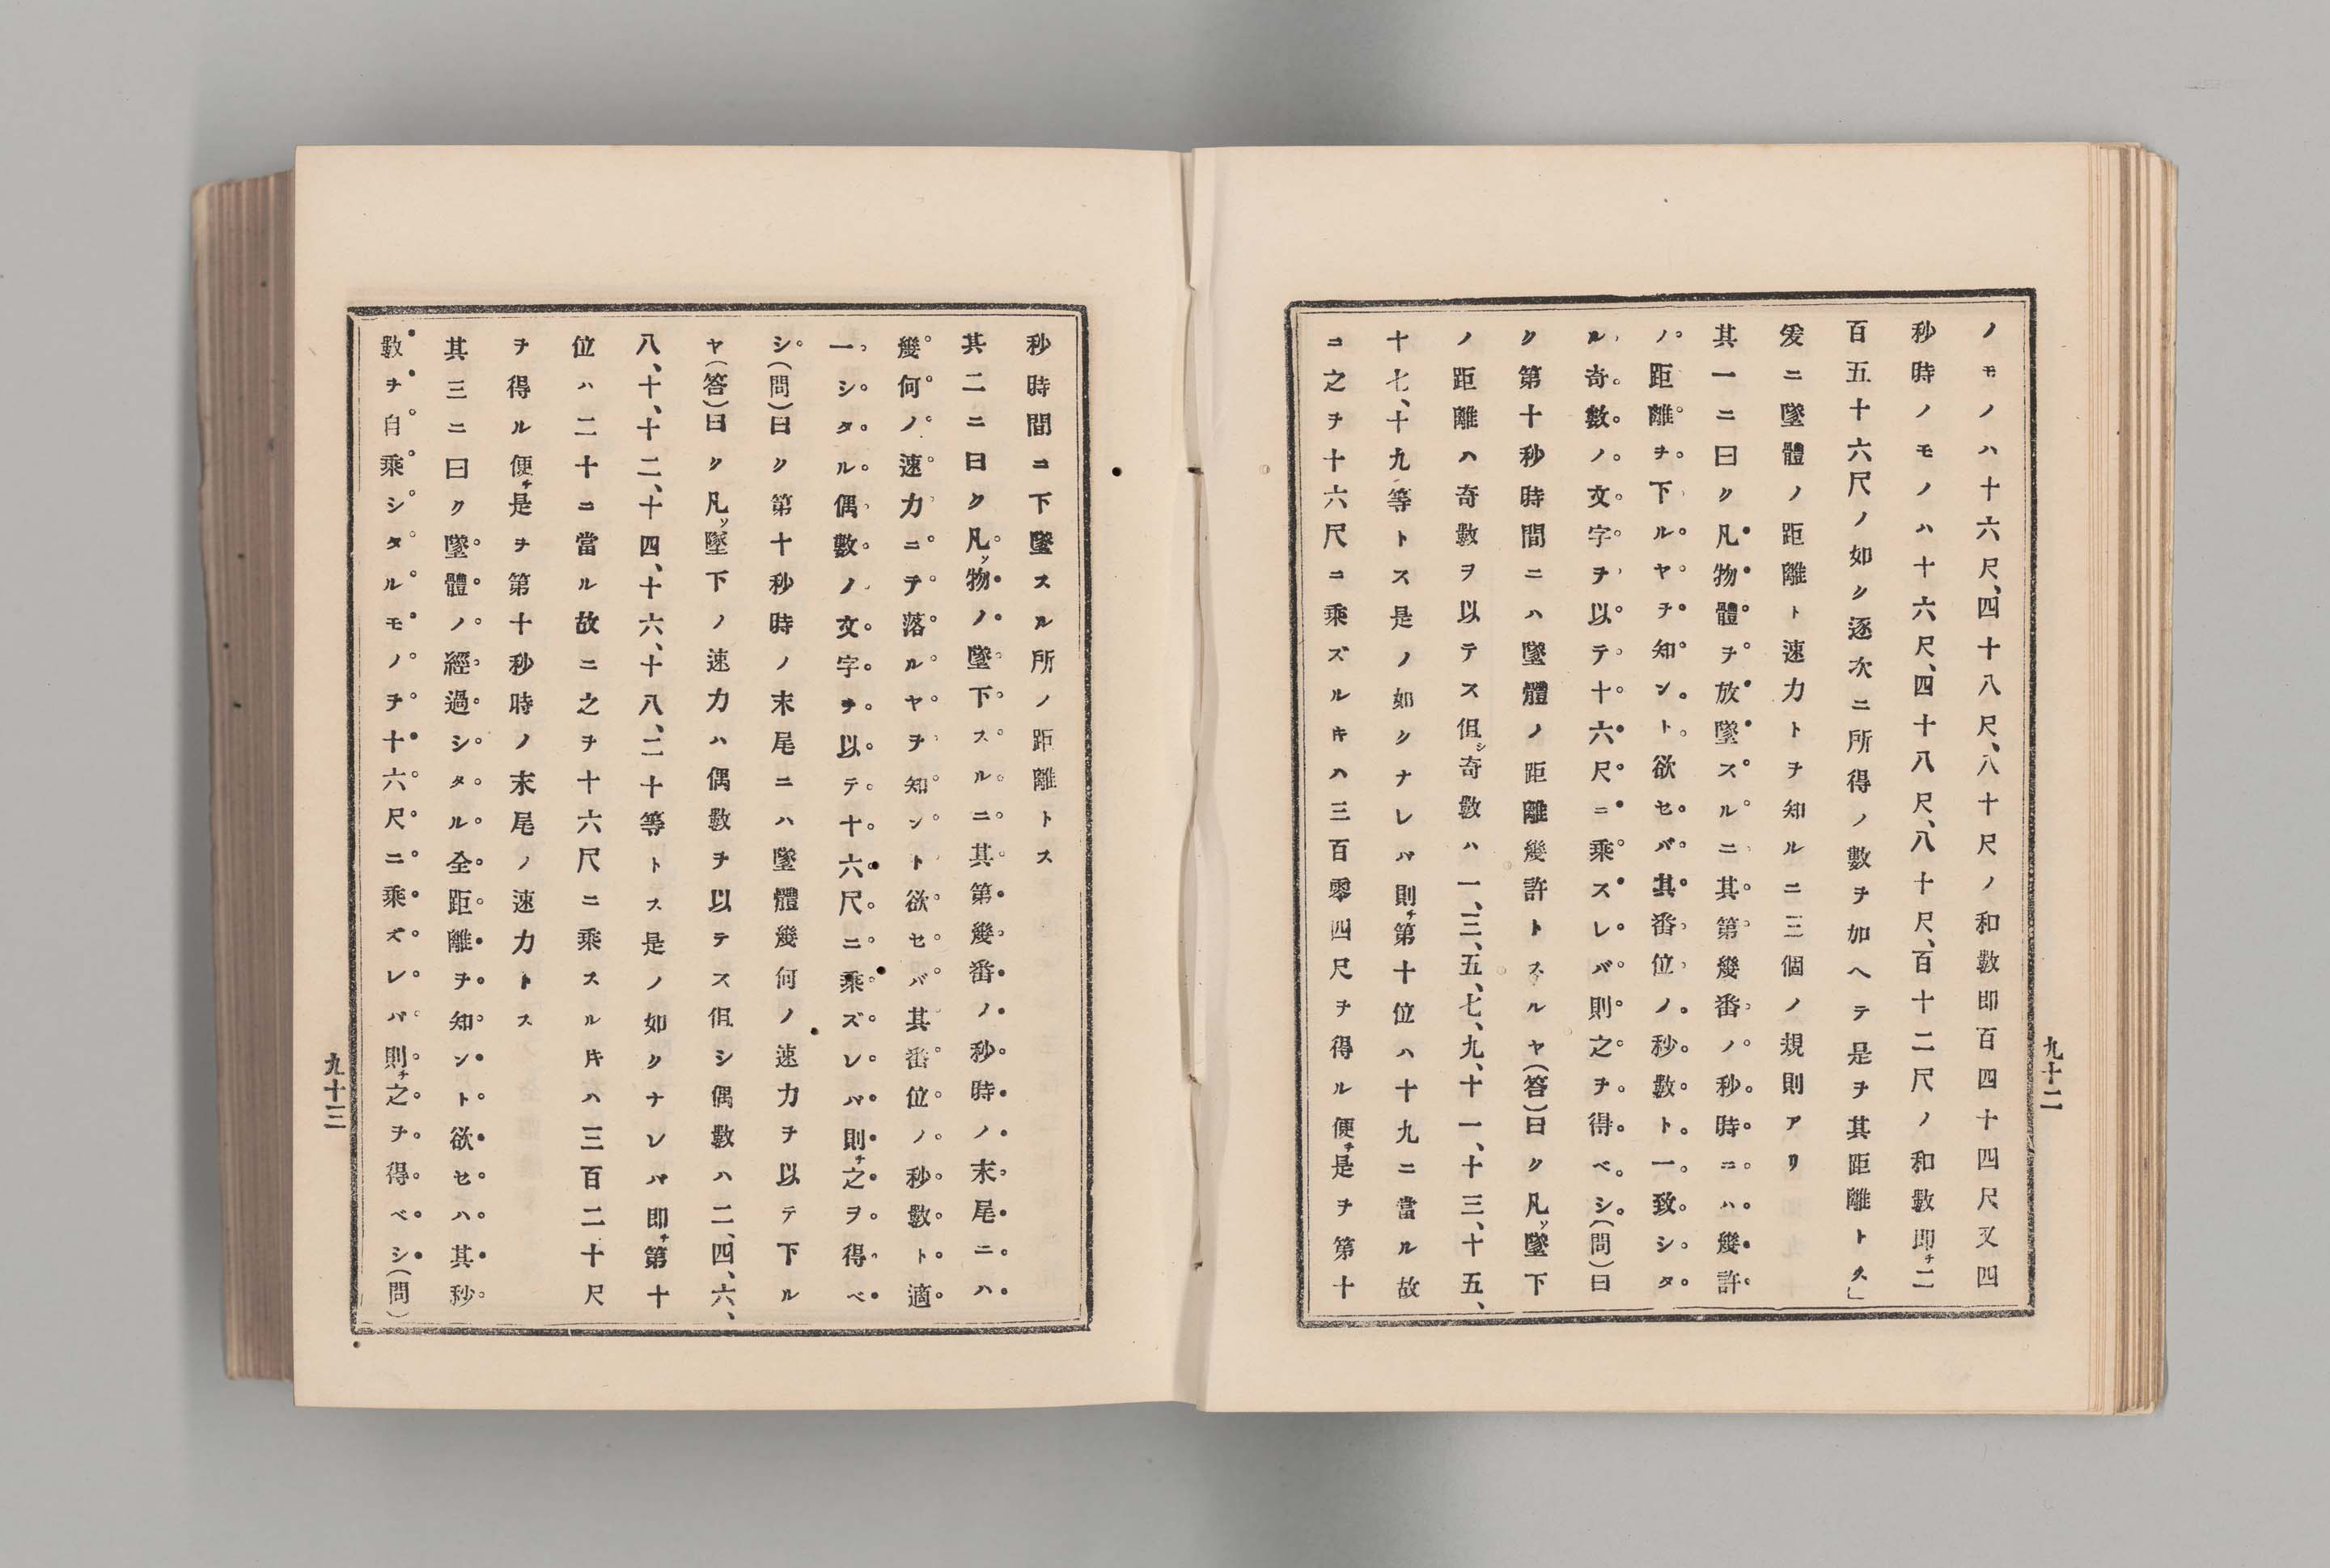 ノモノハ十六尺、四十八尺、八十尺ノ和數即百四十四尺又四
秒時ノモノハ十六尺、四十八尺、八十尺、百十二尺ノ和數即チ二
百五十六尺ノ如ク逐次ニ所得ノ數ヲ加ヘテ是ヲ其距離トス」
爰ニ墜體ノ距離ト速力トヲ知ルニ三個ノ規則アリ
其一ニ曰ク凡物體ヲ放墜スルニ其第幾番ノ秒時ニハ幾許
ノ距離ヲ下ルヤヲ知ント欲セバ其番位ノ秒數ト一致シタ
ル奇數ノ文字ヲ以テ十六尺ニ乘スレバ則之ヲ得ベシ(問)曰
ク第十秒時間ニハ墜體ノ距離幾許トスルヤ(答)曰ク凡ソ墜下
ノ距離ハ奇數ヲ以テス但シ奇數ハ一、三、五、七、九、十一、十三、十五、
十七、十九等トス是ノ如クナレバ則チ第十位ハ十九ニ當ル故
ニ之ヲ十六尺ニ乘ズルキハ三百零四尺ヲ得ル便チ是ヲ第十
九十二
秒時間ニ下墜スル所ノ距離トス
其二ニ曰ク凡ソ物ノ墜下スルニ其第幾番ノ秒時ノ末尾ニハ
幾何ノ速力ニテ落ルヤヲ知ント欲セバ其番位ノ秒數ト適
一シタル偶數ノ文字ヲ以テ十六尺ニ乘ズレバ則チ之ヲ得ベ
シ(問)曰ク第十秒時ノ末尾ニハ墜體幾何ノ速力ヲ以テ下ル
ヤ(答)曰ク凡ソ墜下ノ速力ハ偶數ヲ以テス但シ偶數ハ二、四、六、
八、十、十二、十四、十六、十八、二十等トス是ノ如クナレバ即チ第十
位ハ二十ニ當ル故ニ之ヲ十六尺ニ乘スル片ハ三百二十尺
ヲ得ル便チ是ヲ第十秒時ノ末尾ノ速力トス
其三ニ曰ク墜體ノ經過シタル全距離ヲ知ント欲セハ其秒
數ヲ自乘シタルモノヲ十六尺ニ乘ズレバ則チ之ヲ得ベシ(問)
九十三